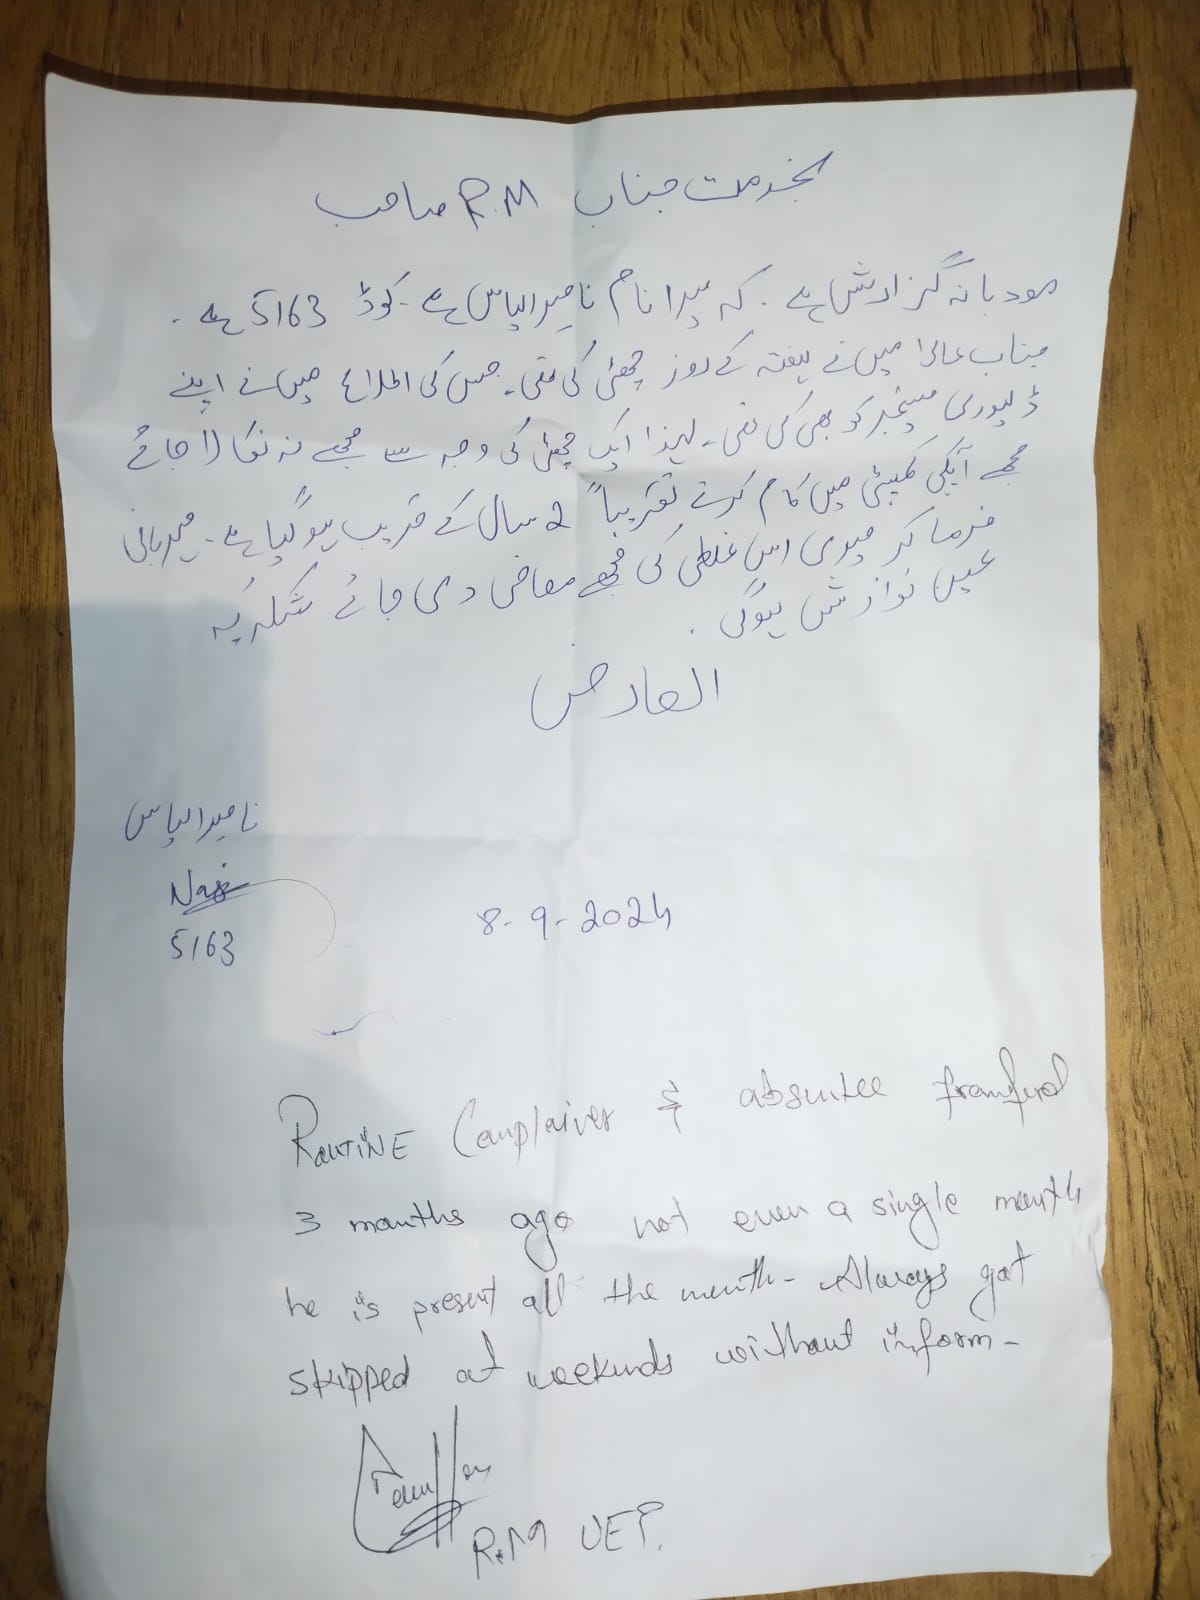 بخدمت جناب R.M صاحب
مودبانہ گزارش ہے . کہ میرا نام ناصر الیاس ہے . کوڈ 5163 ہے .
جناب عالی! میں نے ہفتہ کے روز چھٹی کی تھی . جس کی اطلاع میں نے اپنے
ڈلیوری مینجر کو بھی کی تھی . لہذا ایک چھٹی کی وجہ سے مجھے نہ نکالا جائے
مجھے آپکی کمپنی میں کام کرتے تقریباً 2 سال کے قریب ہوگیا ہے . مہربانی
فرما کر میری اس غلطی کی مجھے معافی دی جائے شکریہ
عین نوازش ہوگی .
العارض
ناصر الیاس
5163
8-9-2024
ROUTINE Complainer & absentee
3 months ago not even a single month
he is present all the month - Always got
skipped at weekends without inform -
R.M UET.